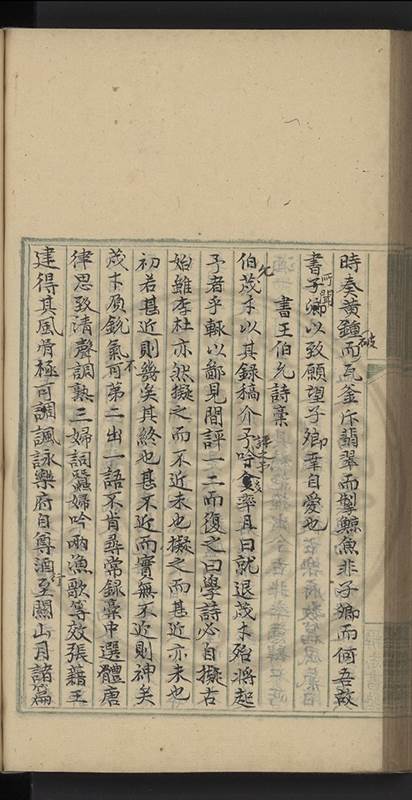 時奏黃鐘而瓦釜斥翡翠而掣鯨魚非子鄉而個吾故
書所聞子鄉以致願望子鄉幸自愛也
書王伯允詩藁
伯允茂才以其録稿介子吟
率且曰就退茂才殆將起
予者乎輒以鄙見間評一二而復之曰學詩必自擬古
始雖李杜亦然擬之而不近未也擬之而甚近亦未也
初若甚近則幾矣其終也甚不近而實無不近則神矣
茂才質銳氣不可第二出一語不肯尋常録藁中選體唐
律思致清聲調熟三婦詞蠶婦吟兩漁歌等效張藉王
建得其風骨極可諷詠樂府自尊酒行至關山月諸篇